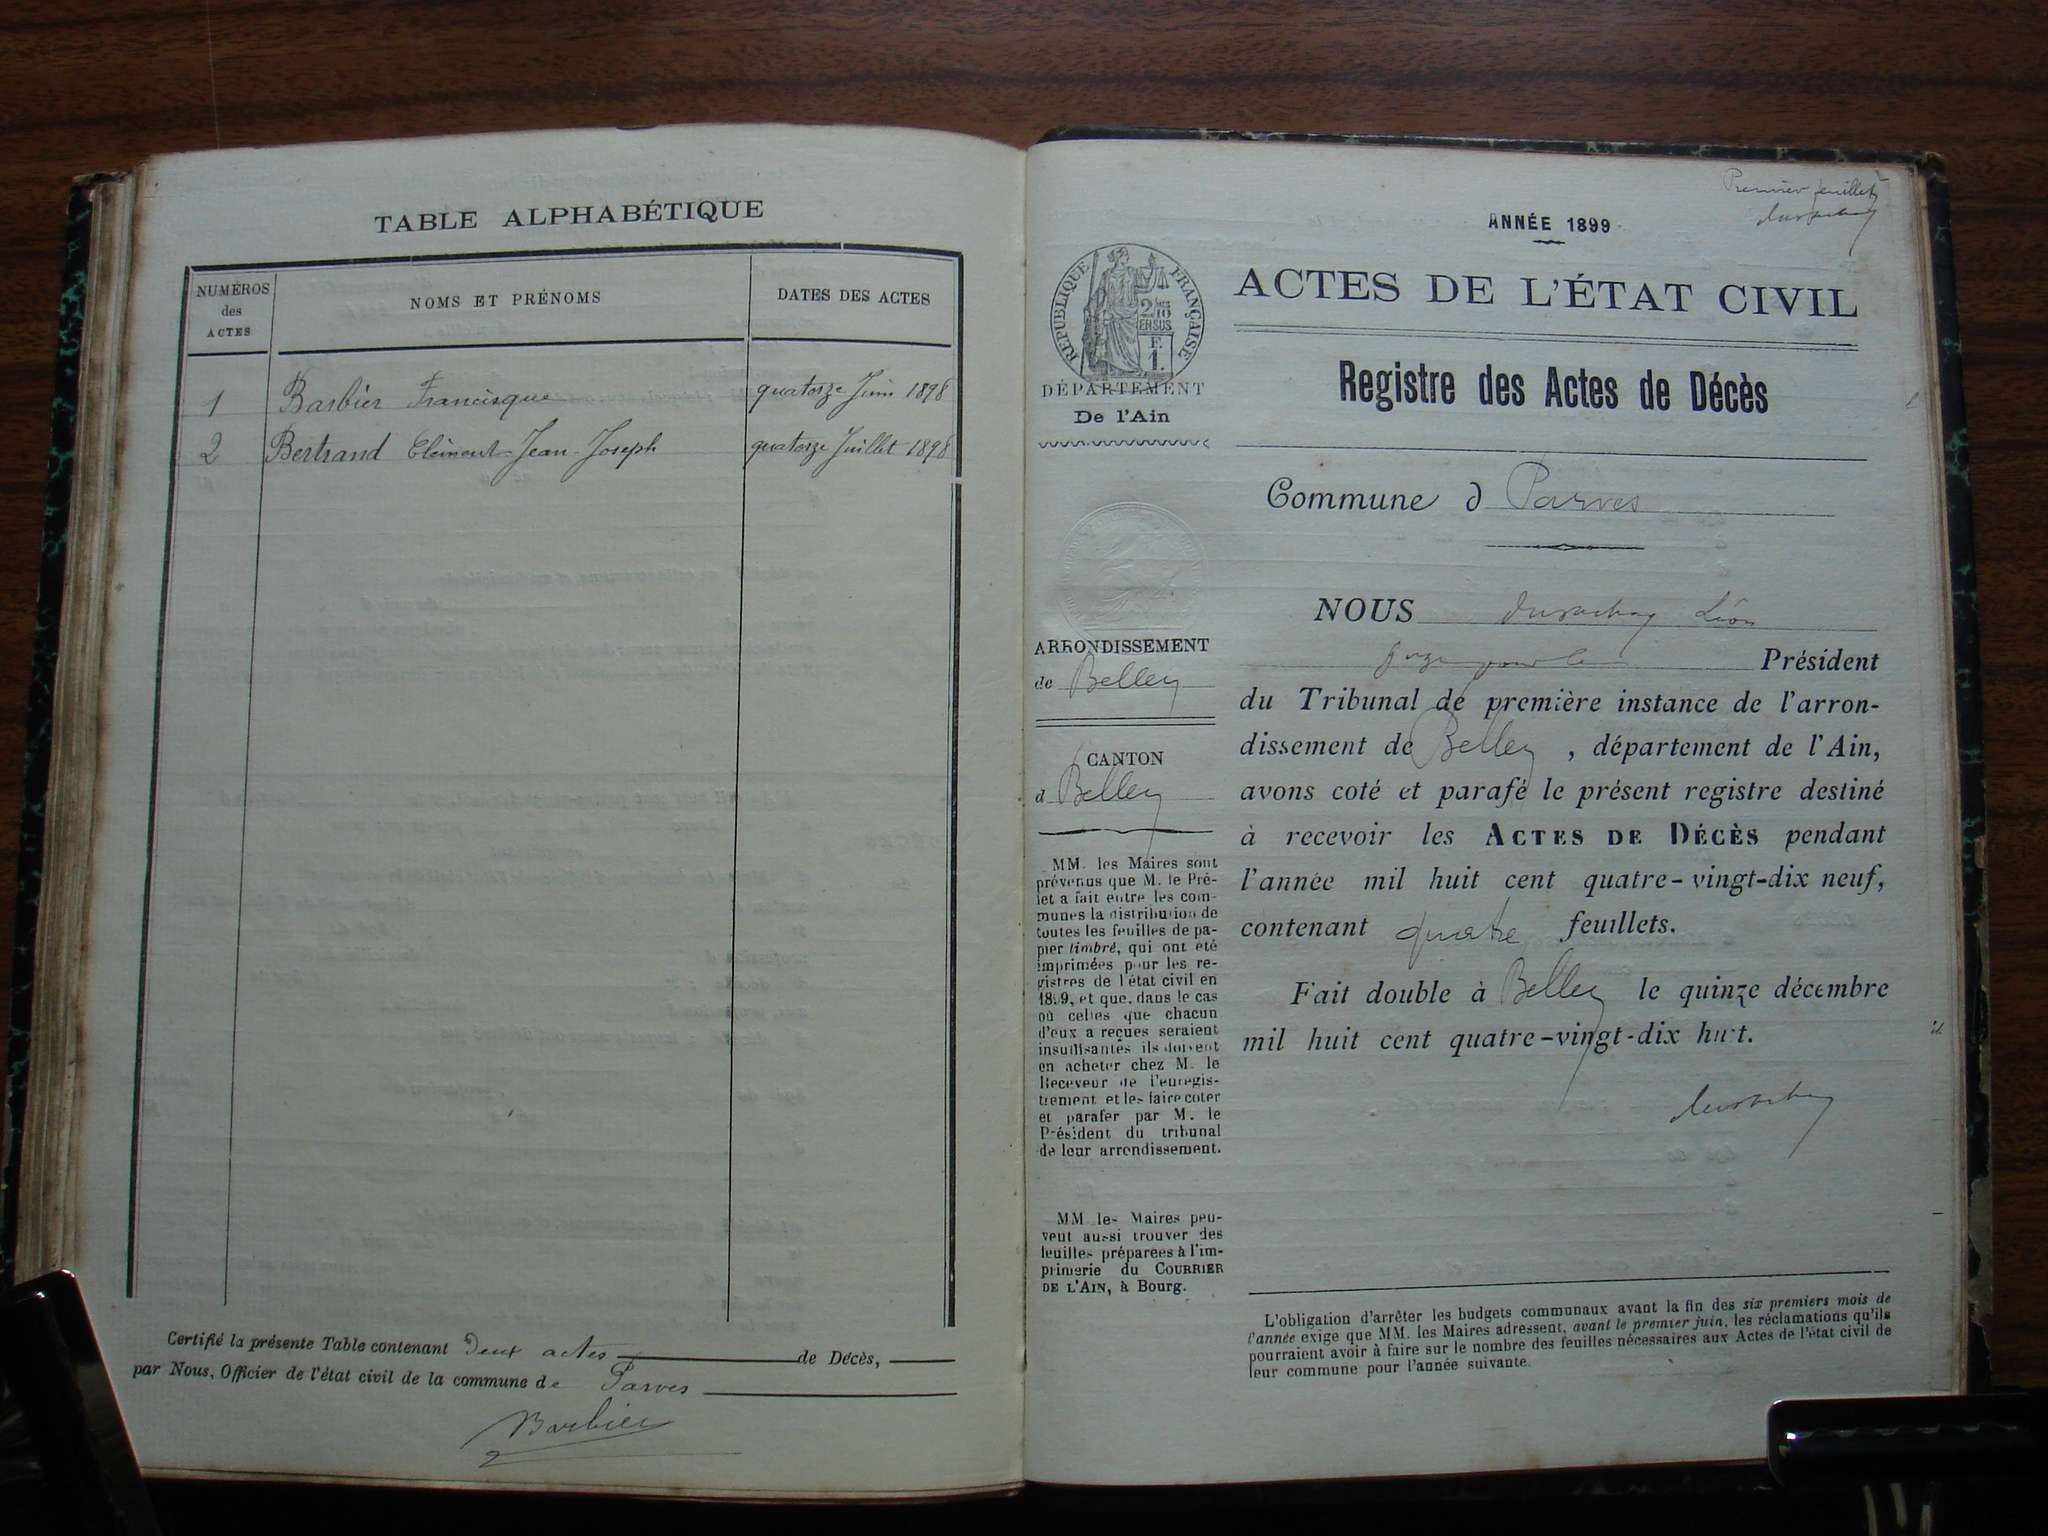 TABLE ALPHABÉTIQUE
NUMÉROS
des
ACTES
NOMS ET PRÉNOMS
DATES DES ACTES
1 Barbier Francisque quatorze Juin 1898
2 Bertrand Clément-Jean-Joseph quatorze Juillet 1898
Certifié la présente Table contenant deux actes de Décès,
par Nous, Officier de l'état civil de la commune de Parves
Barbier
Premier feuillet
ANNÉE 1899
RÉPUBLIQUE FRANÇAISE
2/10
EN SUS
F.
1.
DÉPARTEMENT
De l'Ain
ARRONDISSEMENT
de Belley
CANTON
d Belley
MM. les Maires sont
prévenus que M. le Pré-
fet a fait entre les com-
munes la distribution de
toutes les feuilles de pa-
pier timbré, qui ont été
imprimées pour les re-
gistres de l'état civil en
1899, et que, dans le cas
où celles que chacun
d'eux a reçues seraient
insuffisantes ils doivent
en acheter chez M. le
Receveur de l'enregis-
trement et les faire coter
et parafer par M. le
Président du tribunal
de leur arrondissement.
MM. les Maires peu-
vent aussi trouver des
feuilles préparées à l'im-
primerie du COURRIER
DE L'AIN, à Bourg.
ACTES DE L'ÉTAT CIVIL
Registre des Actes de Décès
Commune d Parves
NOUS Léon
Président
du Tribunal de première instance de l'arron-
dissement de Belley, département de l'Ain,
avons coté et parafé le présent registre destiné
à recevoir les ACTES DE DÉCÈS pendant
l'année mil huit cent quatre-vingt-dix neuf,
contenant quatre feuillets.
Fait double à Belley le quinze décembre
mil huit cent quatre-vingt-dix huit.
L'obligation d'arrêter les budgets communaux avant la fin des six premiers mois de
l'année exige que MM. les Maires adressent, avant le premier juin, les réclamations qu'ils
pourraient avoir à faire sur le nombre des feuilles nécessaires aux Actes de l'état civil de
leur commune pour l'année suivante.